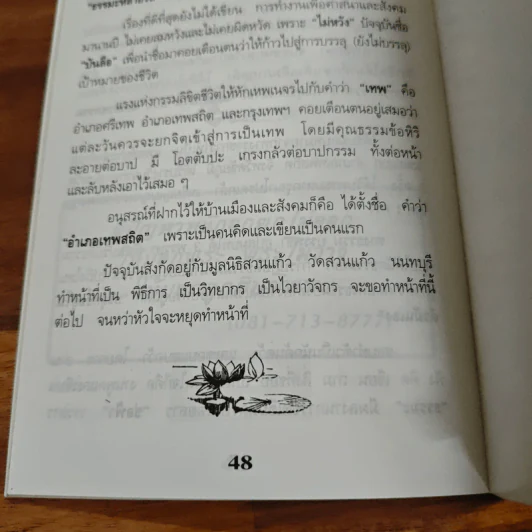 เรื่องที่ดีที่สุดยังไม่ได้เขียน การทำงานเพื่อศาสนาและสังคม
มานานปี ไม่เคยสมหวังและไม่เคยผิดหวัง เพราะ "ไม่หวัง" ปัจจุบันชื่อ
"บันลือ" เพื่อนำชื่อมาคอยเตือนตนว่าให้ก้าวไปสู่การบรรลุ (ยังไม่บรรลุ)
เป้าหมายของชีวิต
แรงแห่งกรรมลิขิตชีวิตให้ทักเทพเนจรไปกับคำว่า "เทพ" คือ
อำเภอศรีเทพ อำเภอเทพสถิต และกรุงเทพฯ คอยเตือนตนอยู่เสมอว่า
แต่ละวันควรจะยกจิตเข้าสู่การเป็นเทพ โดยมีคุณธรรมข้อหิริ
ละอายต่อบาป มี โอตตัปปะ เกรงกลัวต่อบาปกรรม ทั้งต่อหน้า
และลับหลังเอาไว้เสมอ ๆ
อนุสรณ์ที่ฝากไว้ให้บ้านเมืองและสังคมก็คือ ได้ตั้งชื่อ คำว่า
"อำเภอเทพสถิต" เพราะเป็นคนคิดและเขียนเป็นคนแรก
ปัจจุบันสังกัดอยู่กับมูลนิธิสวนแก้ว วัดสวนแก้ว นนทบุรี
ทำหน้าที่เป็น พิธีการ เป็นวิทยากร เป็นไวยาวัจกร จะขอทำหน้าที่นี้
ต่อไป จนหัวใจจะหยุดทำหน้าที่
48